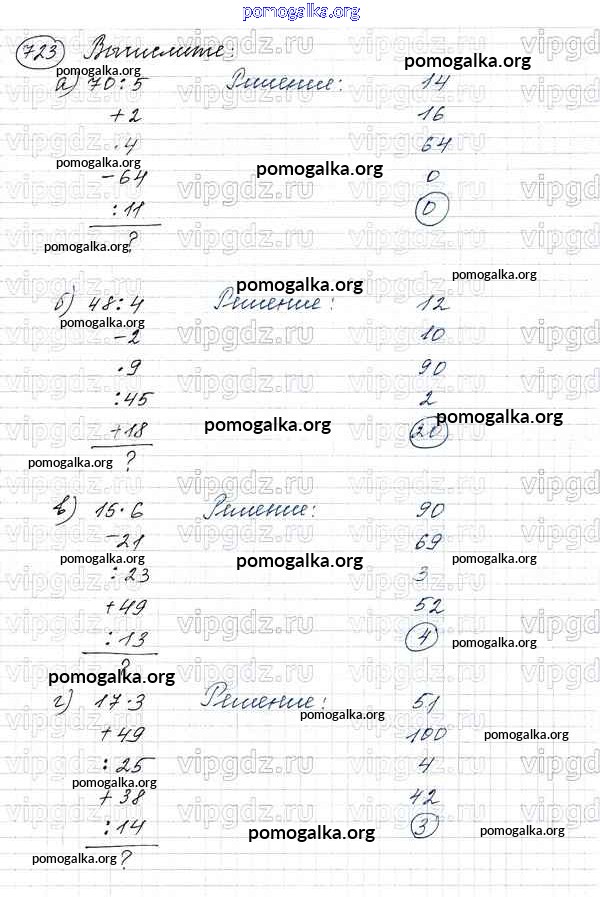 pomogalka.org
723 Вычислите:
а) 70 : 5 Решение: 14
+2 16
· 4 64
- 64 0
: 11 0
?
б) 48 : 4 Решение: 12
- 2 10
· 9 90
: 45 2
+ 18 20
?
в) 15 · 6 Решение: 90
- 21 69
: 23 3
+ 49 52
: 13 4
?
г) 17 · 3 Решение: 51
+ 49 100
: 25 4
+ 38 42
: 14 3
?